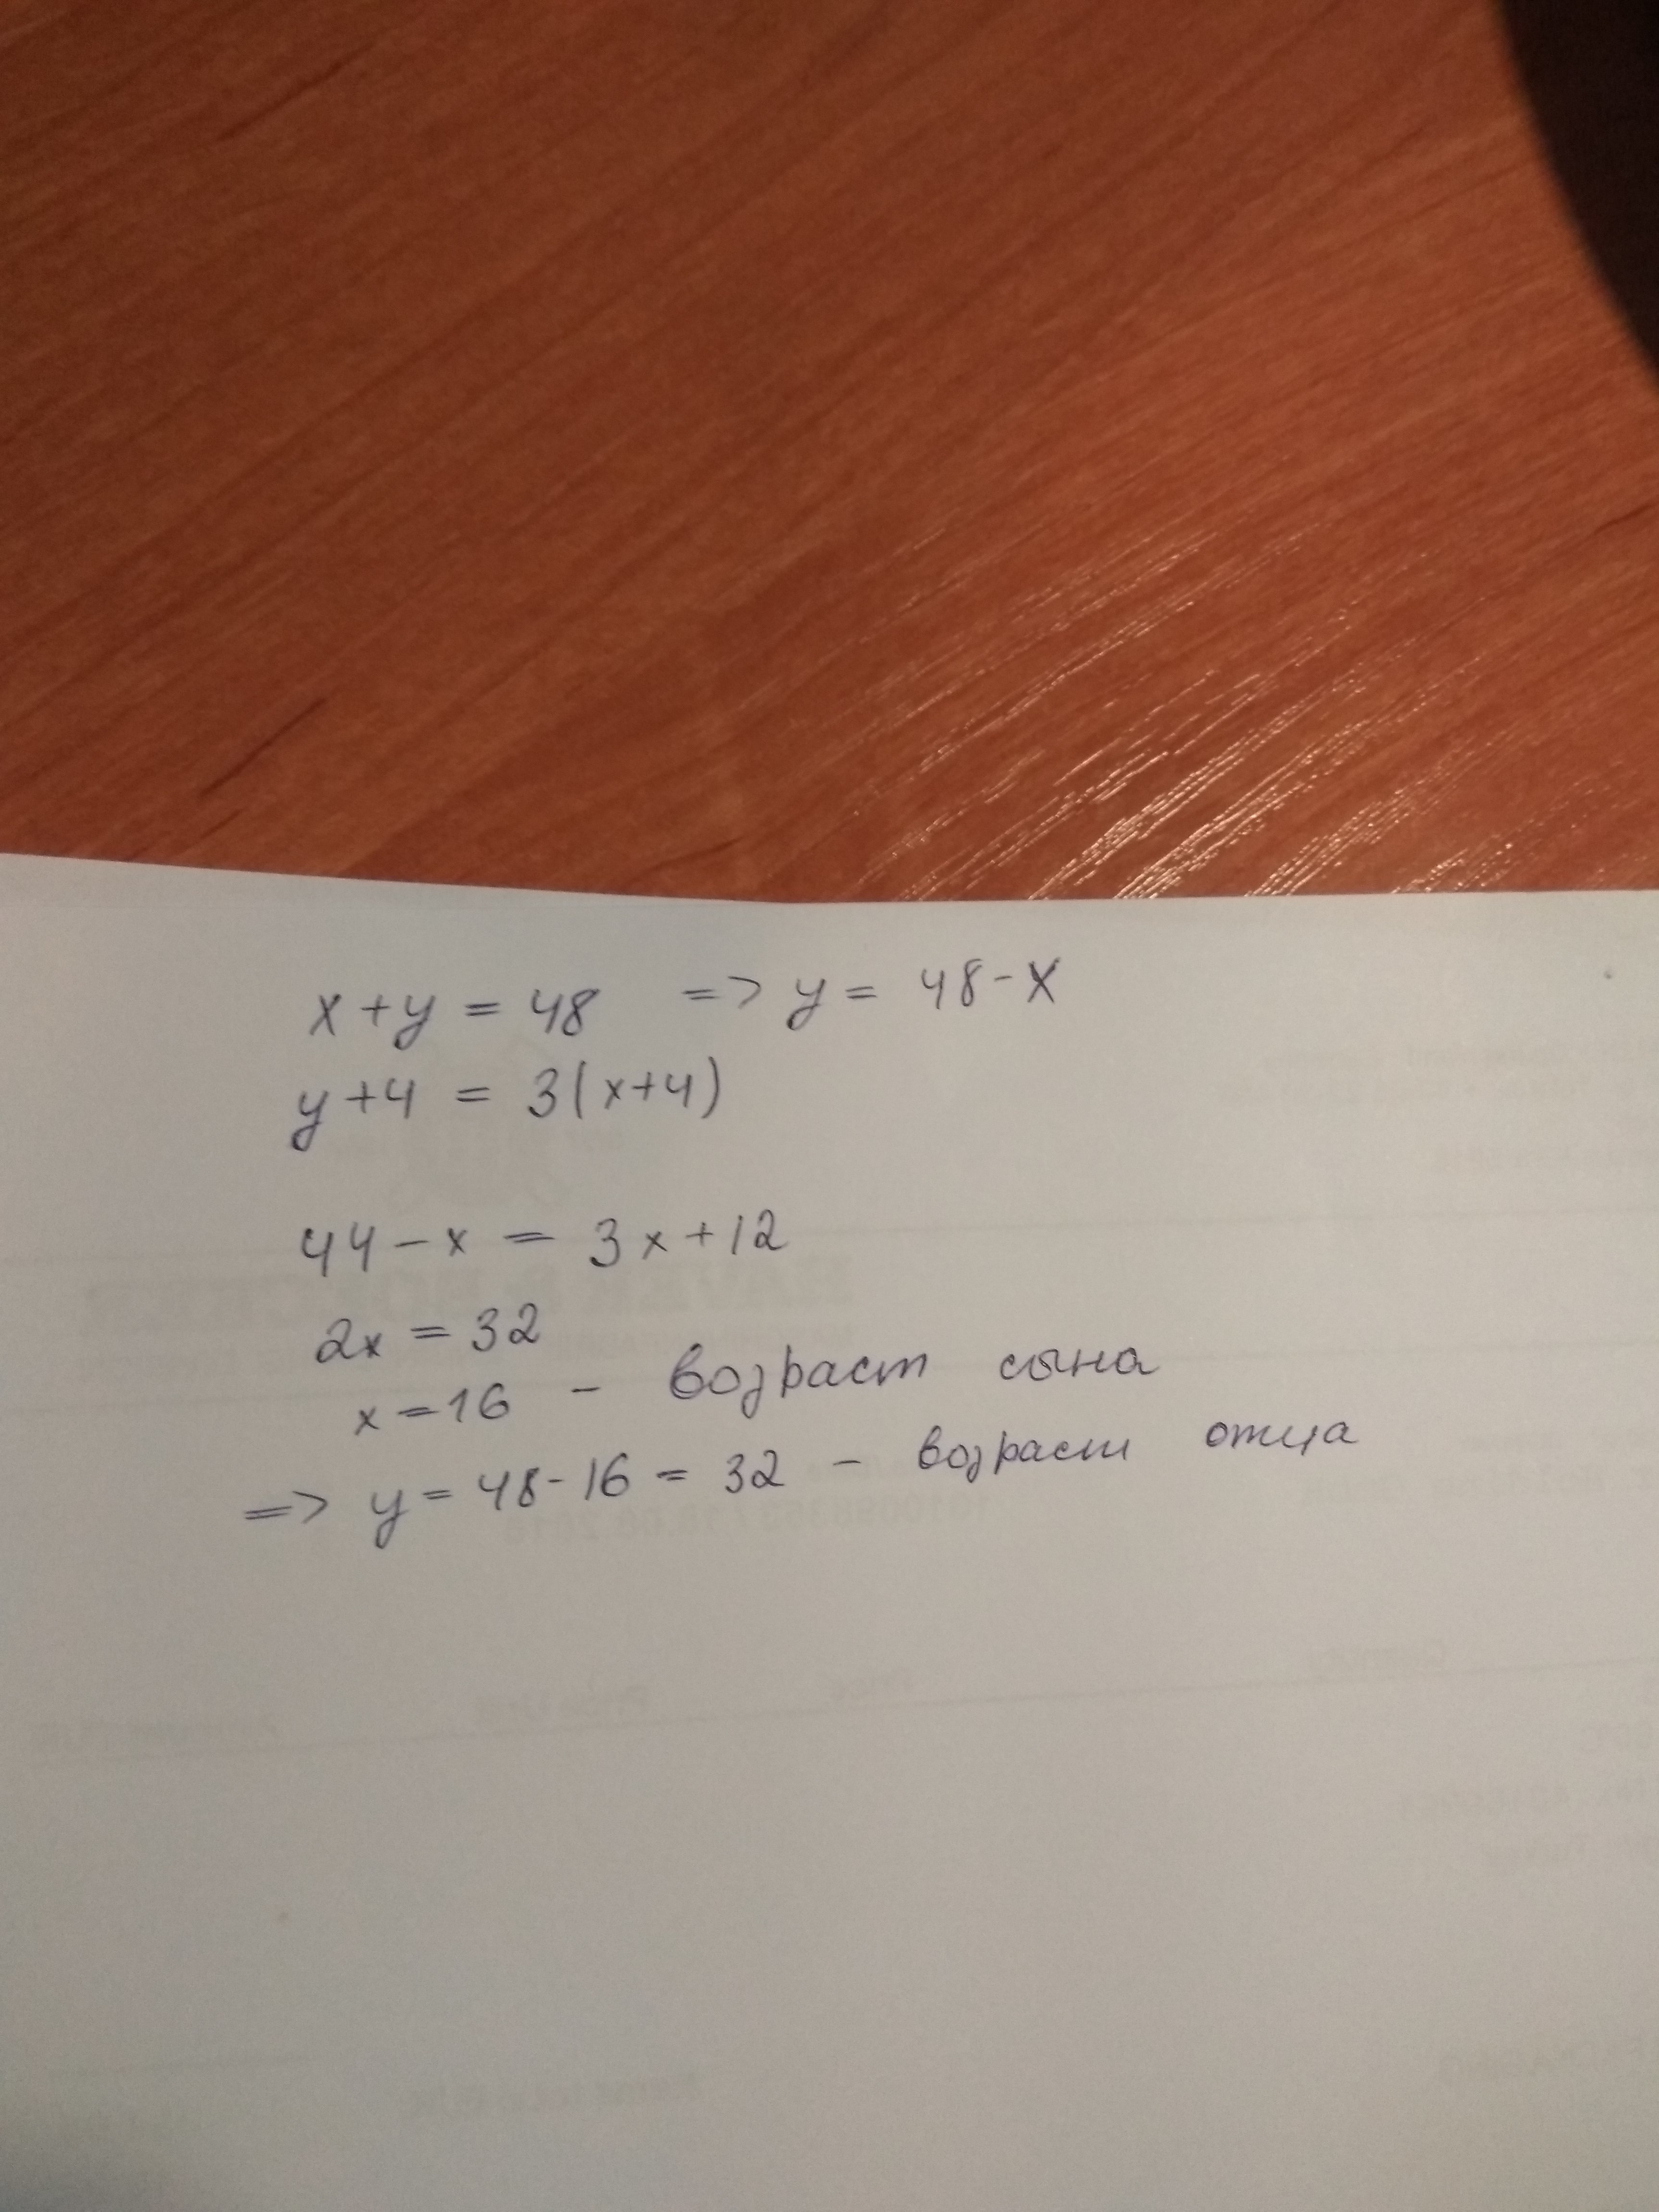 x+y = 48 => y = 48-x
y+4 = 3(x+4)
44-x = 3x+12
2x = 32
x=16 - возраст сына
=> y = 48-16 = 32 - возраст отца